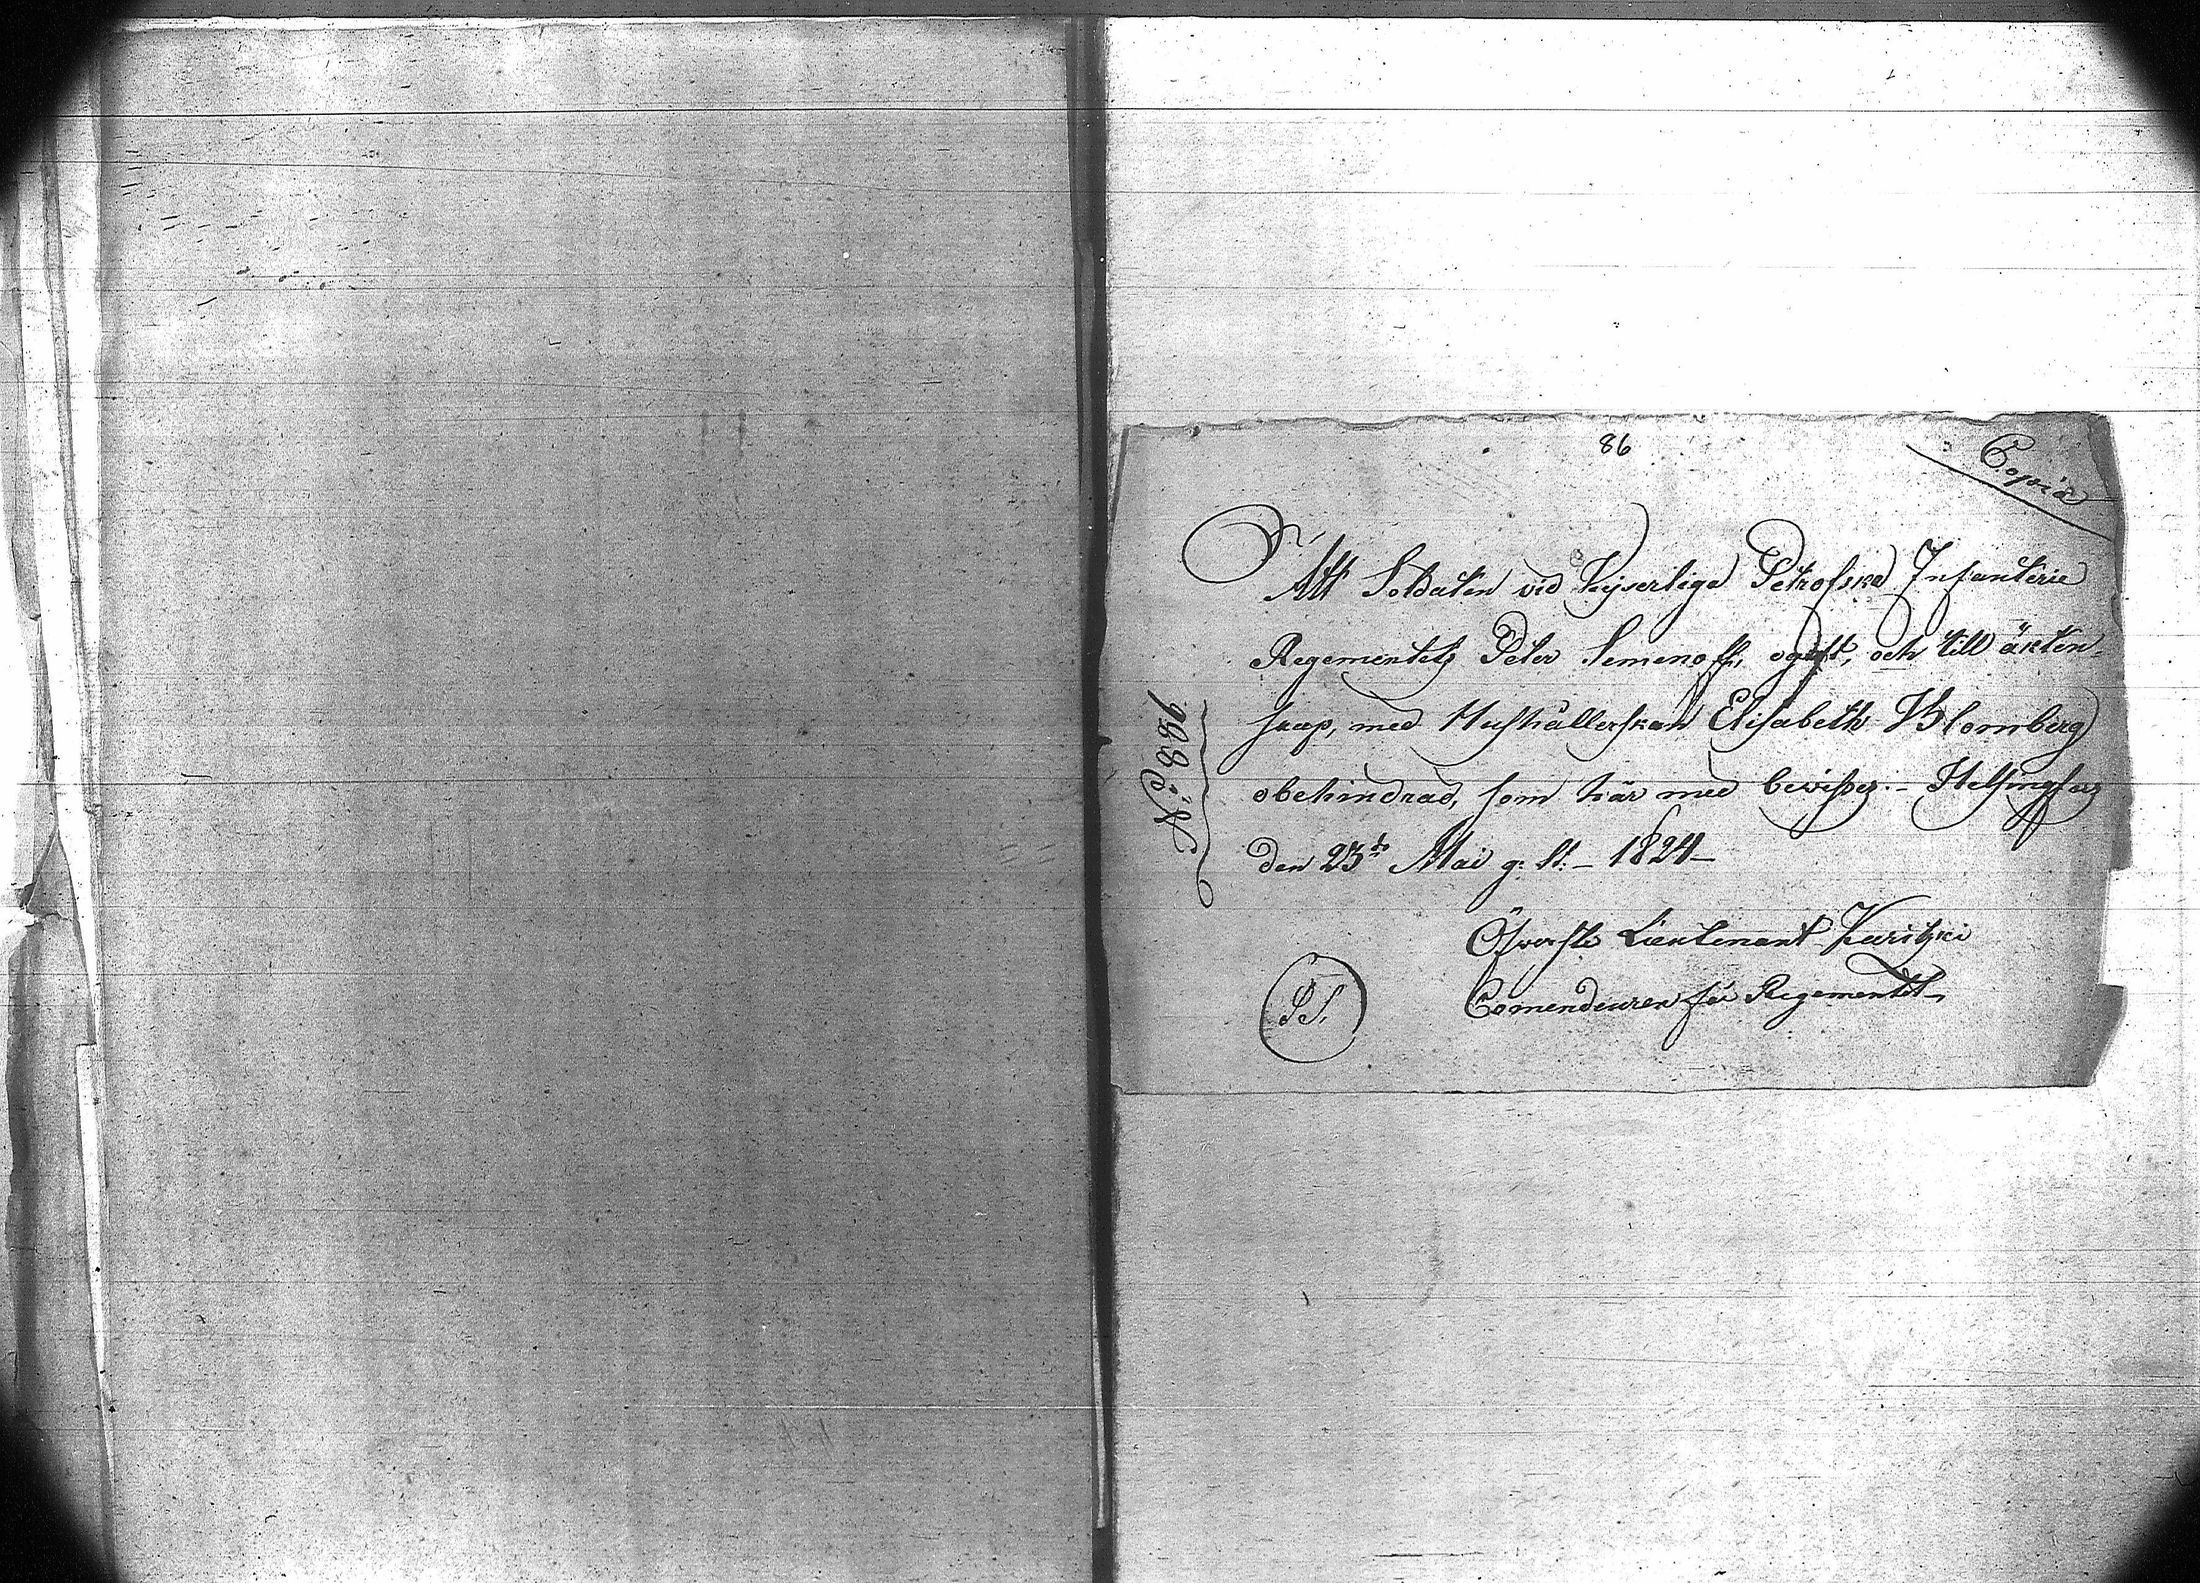 86
Copia
Att Soldaten vid Kejserliga Petrofska Infanterie
Regementets Peter Semenoff, ogift, och till äkten-
skap, med Hushållerskan Elisabeth Blomberg
obehindrad, som här med bevisses. - Helsingfors
den 23de Mai g. St. - 1824 -
Öfverste Lieutenant
Comendeuren för Regementet
LS.
No: 896